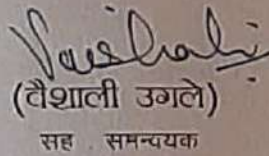 Vaishali
(वैशाली उगले)
सह . समन्वयक